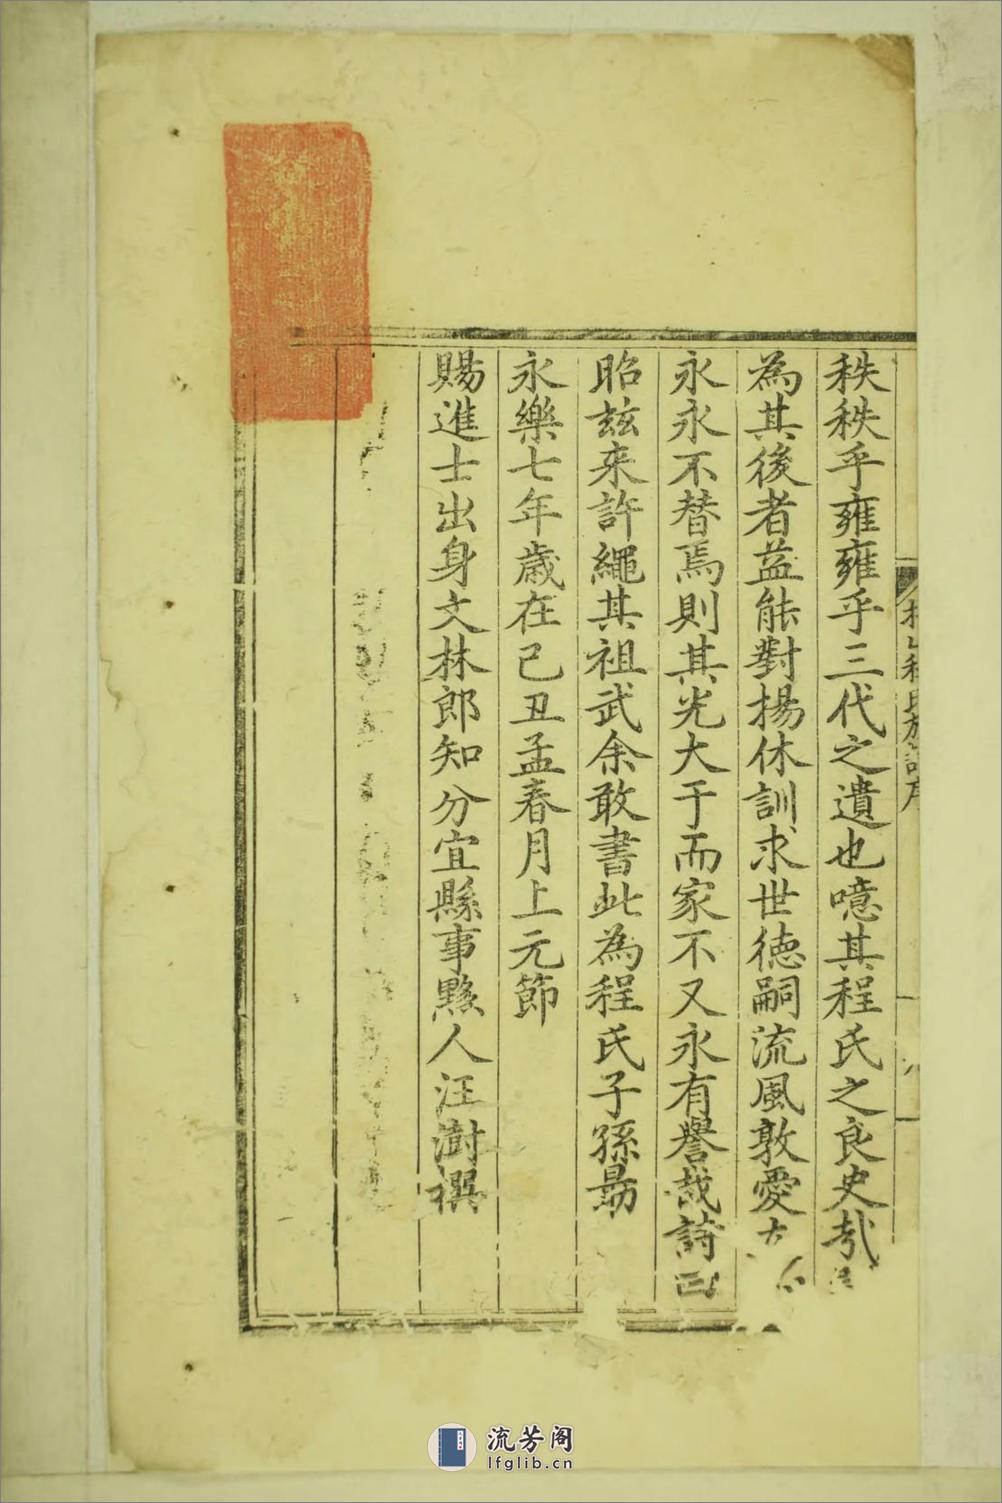 秩秩乎雍雍乎三代之遺也噫其程氏之良史哉
為其後者益能對揚休訓求世德嗣流風敦愛
永永不替焉則其光大于而家不又永有譽哉詩曰
昭玆来許繩其祖武余敢書此為程氏子孫勗
永樂七年歲在己丑孟春月上元節
賜進士出身文林郎知分宜縣事黟人汪澍撰
流芳阁
lfglib.cn